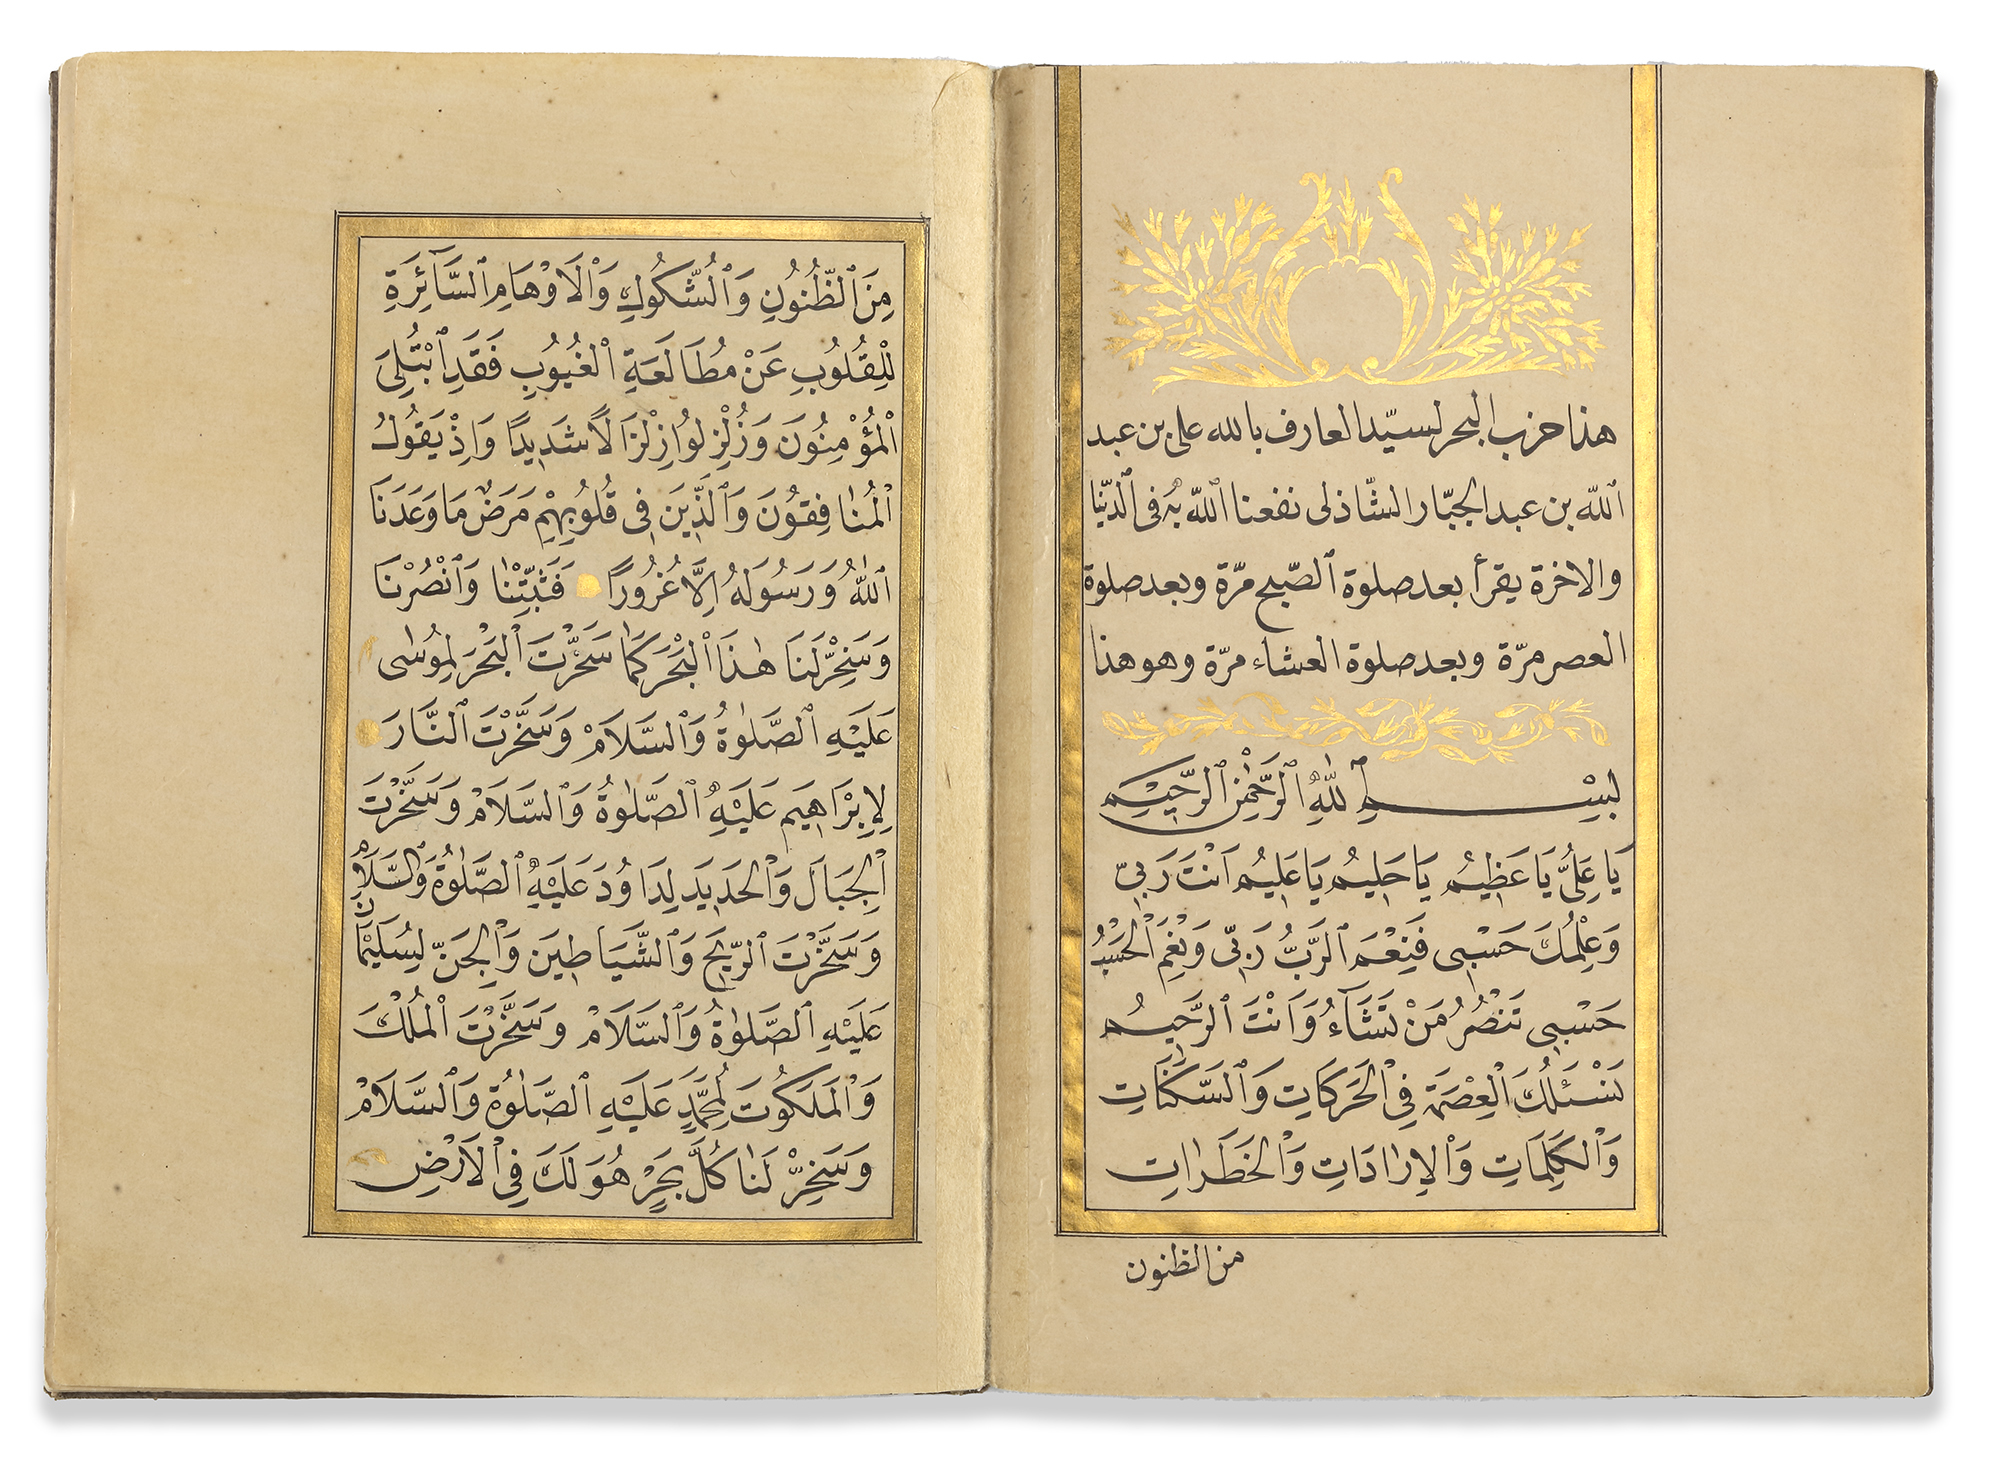 هذا حزب البحر لسيّد العارف بالله على بن عبد
اللّه بن عبد الجبّار الشّاذلى نفعنا اللّه به فى الدّنيا
والاخرة يقرأ بعد صلوة الصّبح مرّة وبعد صلوة
العصر مرّة وبعد صلوة العشاء مرّة وهو هذا
بِسْمِ اللّٰهِ الرَّحْمٰنِ الرَّحٖيمِ
يَا عَلِىُّ يَا عَظٖيمُ يَا حَلٖيمُ يَا عَلٖيمُ اَنْتَ رَبّٖى
وَعِلْمُكَ حَسْبٖى فَنِعْمَ الرَّبُّ رَبّٖى وَنِعْمَ الْحَسْبُ
حَسْبٖى تَنْصُرُ مَنْ تَشَٓاءُ وَاَنْتَ الرَّحٖيمُ
نَسْئَلُكَ الْعِصْمَةَ فِى الْحَرَكَاتِ وَالسَّكَنَاتِ
وَالْكَلِمَاتِ وَالْاِرَادَاتِ وَالْخَطَرَاتِ
من الظنون
مِنَ الظُّنُونِ وَالشُّكُوكِ وَالْاَوْهَامِ السَّٓائِرَةِ
لِلْقُلُوبِ عَنْ مُطَالَعَةِ الْغُيُوبِ فَقَدِ ابْتُلِىَ
الْمُؤْمِنُونَ وَزُلْزِلُوا زِلْزَالًا شَدٖيدًا وَاِذْ يَقُولُ
الْمُنَافِقُونَ وَالَّذٖينَ فٖى قُلُوبِهِمْ مَرَضٌ مَا وَعَدَنَا
اللّٰهُ وَرَسُولُهُ اِلَّا غُرُورًا فَثَبِّتْنَا وَانْصُرْنَا
وَسَخِّرْ لَنَا هٰذَا الْبَحْرَ كَمَا سَخَّرْتَ الْبَحْرَ لِمُوسٰى
عَلَيْهِ الصَّلٰوةُ وَالسَّلَامْ وَسَخَّرْتَ النَّارَ
لِاِبْرَاهٖيمَ عَلَيْهِ الصَّلٰوةُ وَالسَّلَامْ وَسَخَّرْتَ
الْجِبَالَ وَالْحَدٖيدَ لِدَاوُدَ عَلَيْهِ الصَّلٰوةُ وَالسَّلَامْ
وَسَخَّرْتَ الرّٖيحَ وَالشَّيَاطٖينَ وَالْجِنَّ لِسُلَيْمٰنَ
عَلَيْهِ الصَّلٰوةُ وَالسَّلَامْ وَسَخَّرْتَ الْمُلْكَ
وَالْمَلَكُوتَ لِمُحَمَّدٍ عَلَيْهِ الصَّلٰوةُ وَالسَّلَامْ
وَسَخِّرْ لَنَا كُلَّ بَحْرٍ هُوَ لَكَ فِى الْاَرْضِ